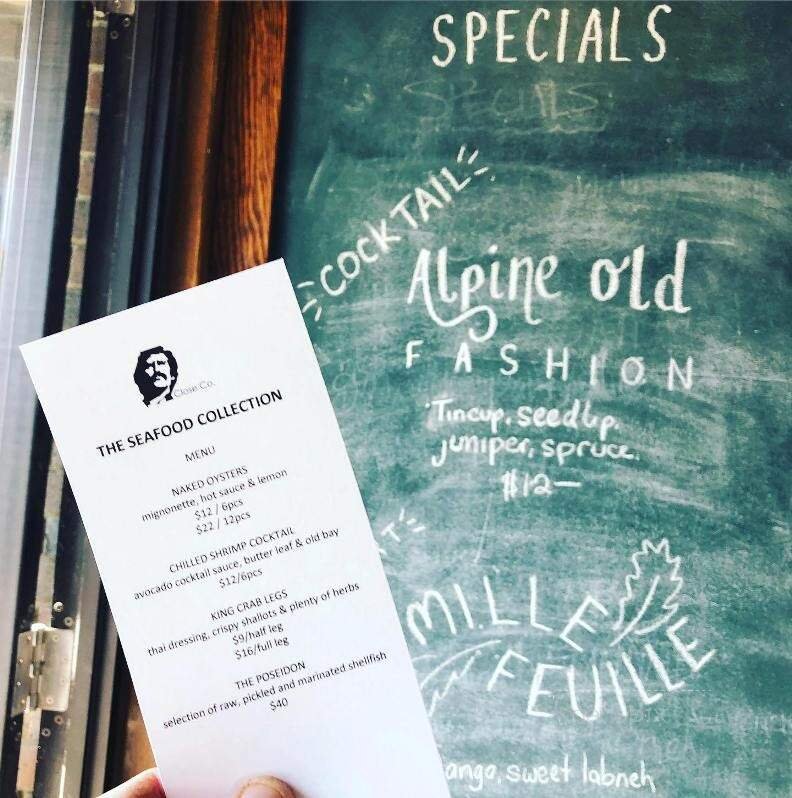 Close Co.
THE SEAFOOD COLLECTION
MENU
NAKED OYSTERS
mignonette, hot sauce & lemon
$12 / 6pcs
$22 / 12pcs
CHILLED SHRIMP COCKTAIL
avocado cocktail sauce, butter leaf & old bay
$12/6pcs
KING CRAB LEGS
thai dressing, crispy shallots & plenty of herbs
$9/half leg
$16/full leg
THE POSEIDON
selection of raw, pickled and marinated shellfish
$40
SPECIALS
COCKTAIL
Alpine old
FASHION
Tincup, seedlip,
juniper, spruce.
$12—
MILLE
FEUILLE
ango, sweet labneh